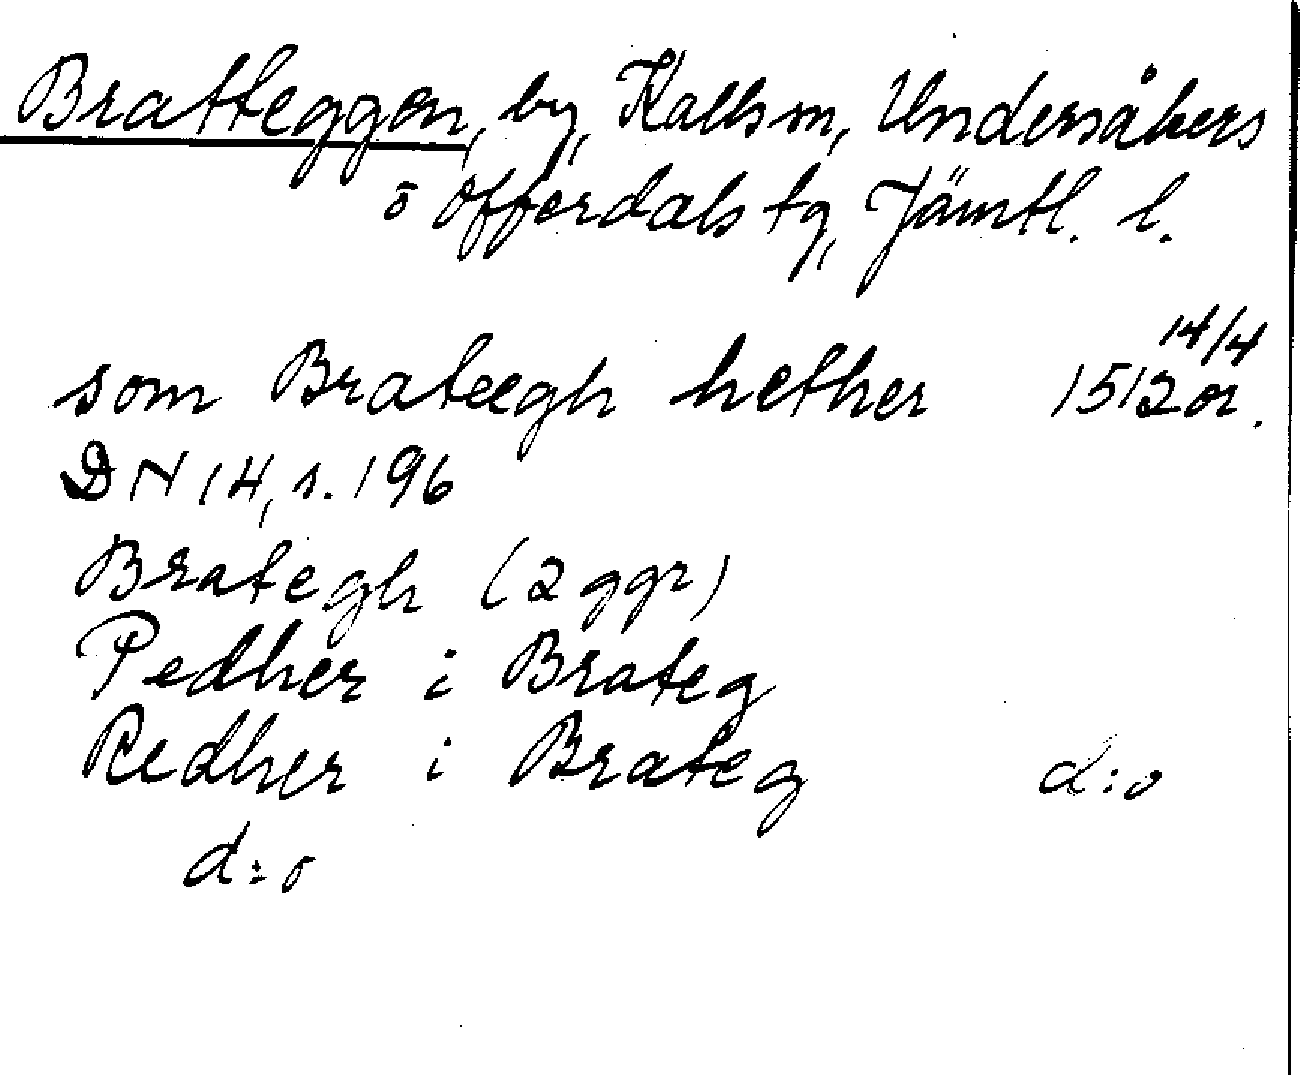 Bratteggen, by, Kalls sn, Undersåkers
o Offerdals tg, Jämtl. l.
14/4
som Brateegh hether 1512 or.
DN 14, s. 196
Brategh (2 ggr)
Pedher i Brateg
Pedher i Brateg d:o
d:o